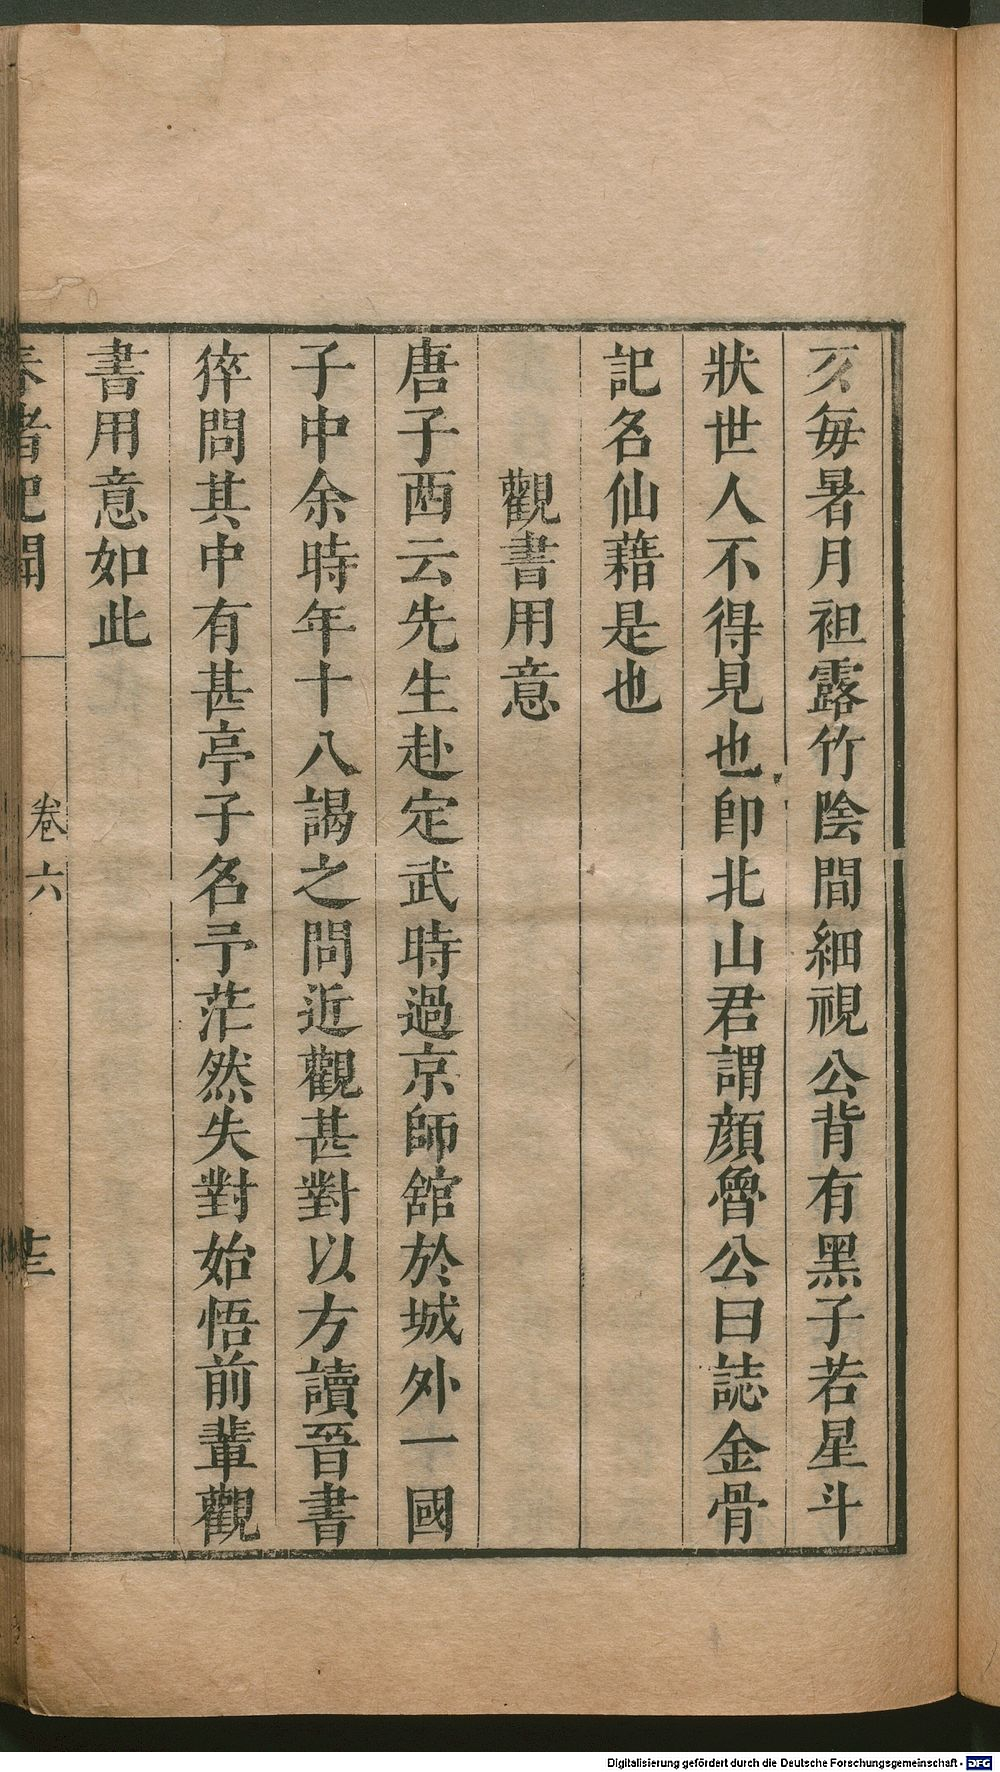 每暑月袒露竹陰間細視公背有黑子若星斗
狀世人不得見也卽北山君謂顔魯公曰誌金骨
記名仙藉是也
觀書用意
唐子西云先生赴定武時過京師舘於城外一國
子中余時年十八謁之問近觀甚對以方讀晉書
猝問其中有甚亭子名予茫然失對始悟前輩觀
書用意如此
春渚紀聞
卷六
Digitalisierung gefördert durch die Deutsche Forschungsgemeinschaft - DFG